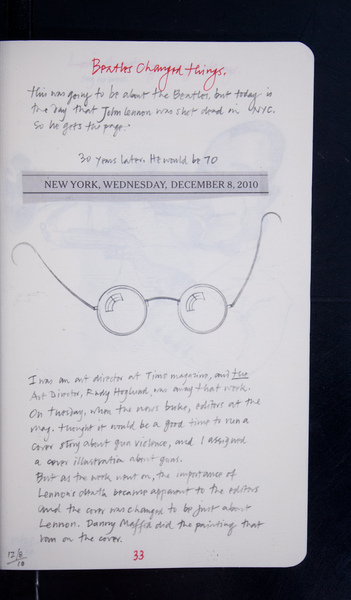 Beatles Changed things.
This was going to be about the Beatles, but today is
the day that John Lennon was shot dead in NYC.
So he gets the page.
30 years later. He would be 70
NEW YORK, WEDNESDAY, DECEMBER 8, 2010
I was an art director at Time magazine, and the
Art Director, Rudy Hoglund, was away that week.
On Tuesday, when the news broke, editors at the
mag. thought it would be a good time to run a
cover story about gun violence, and I assigned
a cover illustration about guns.
But as the week went on, the importance of
Lennon's death became apparent to the editors
and the cover was changed to be just about
Lennon. Danny Maffia did the painting that
ran on the cover.
12/8
10
33